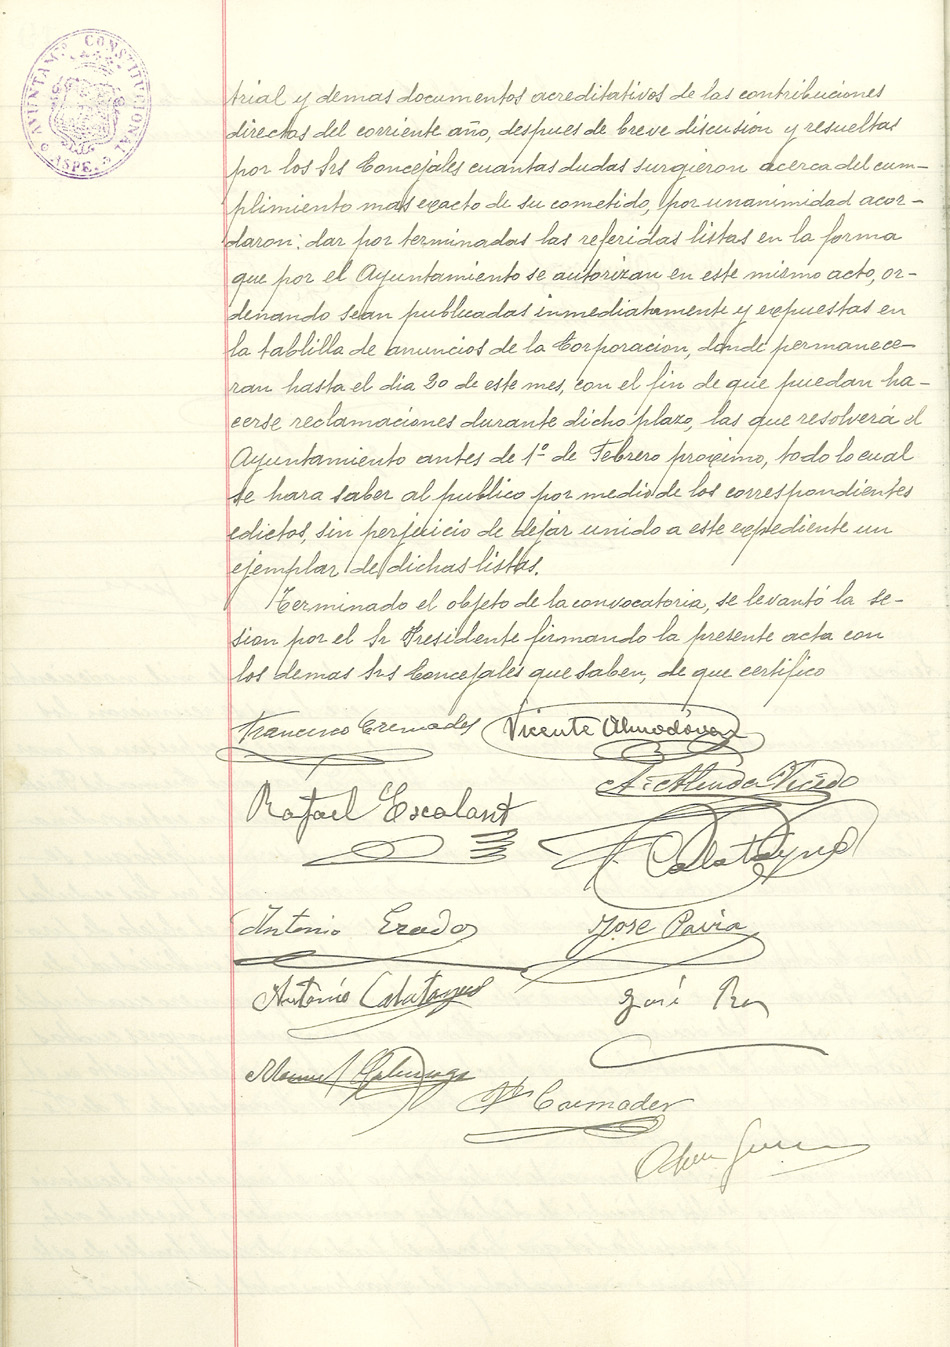 AYUNTAMº CONSTITUCIONAL
ASPE.
trial y demas documentos acreditativos de las contribuciones
directas del corriente año, despues de breve discusion y resueltas
por los Srs Concejales cuantas dudas surgieron acerca del cum-
plimiento mas exacto de su cometido, por unanimidad acor-
daron: dar por terminadas las referidas listas en la forma
que por el Ayuntamiento se autorizan en este mismo acto, or-
denando sean publicadas inmediatamente y expuestas en
la tablilla de anuncios de la Corporacion, donde permanece-
ran hasta el dia 20 de este mes, con el fin de que puedan ha-
cerse reclamaciones durante dicho plazo, las que resolverá el
Ayuntamiento antes de 1º de Febrero proximo, todo lo cual
se hara saber al publico por medio de los correspondientes
edictos, sin perjuicio de dejar unido a este expediente un
ejemplar de dichas listas.
Terminado el objeto de la convocatoria, se levantó la se-
sion por el Sr Presidente firmando la presente acta con
los demas Srs Concejales que saben, de que certifico
Francisco Cremades Vicente Almodóvar
Vicedo
Rafael Escolant
Calatayud
Antonio José Pavia
Antonio Calatayud José
Manuel
Cremades